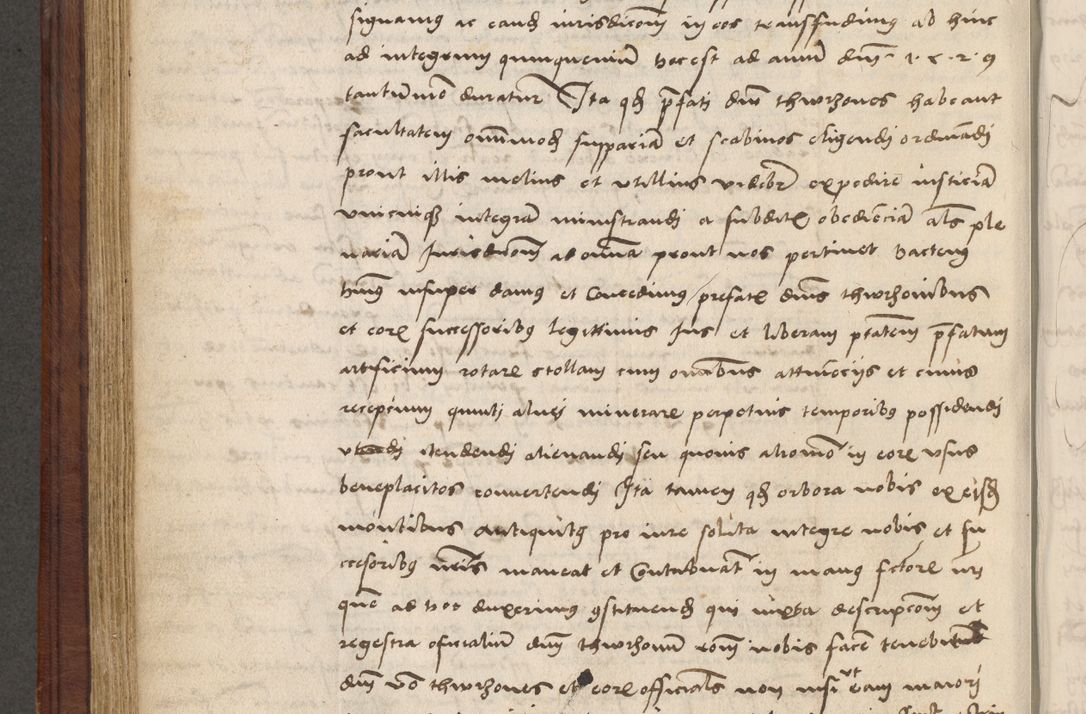 signamus ac eandem iurisdicionem in eos transfudimus ab hinc
ad integrum quinquenium hoc est ad annum dum 1 5 2 9
tantummodo duratur Ita qd pfati dni thwrzones habeant
facultatem omnimodam suppariam et scabinos eligendi ordinandi
prout illis melius et utilius videbr expedire insticiam
unicuiqz integram ministrandi a subditis obedienciam als ple
nariam Jurisdicionem ab omnia prout nos pertinet hactenus
insuper damus et Concedimus prefatis dnis thwrzonibus
et eorz successoribus legittimis Jus et liberam ptatem pfatum
artificium rotare stollam cum omnibus attineciis et cuius
alvei minerare perpetuis temporibus possidendi
utendi tendendi alienandi seu quovis aliomodo in eorz usus
beneplacitos convertendi Ita tamen qd orbora nobis ex eisdem
montibus antiquitus pro iure solita integre nobis et su
ccessoribus nris maneat et Contribuatur in manus fctorz nri
quem ad hoc duxerimus constituendum qui iuxta descripcionem et
regestra oficialium dnm thwrzonum eom nobis facem tenebitur
dni vo thwrzones et eorz officiales non nisi ut eam maiori